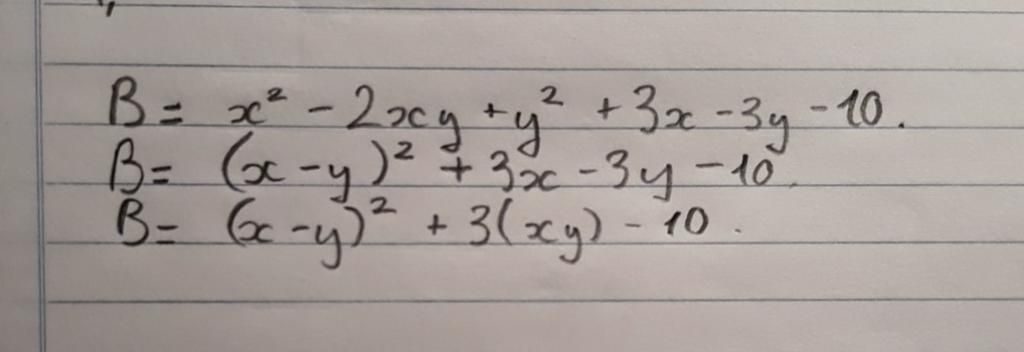 B = x² - 2xy + y² + 3x - 3y - 10.
B = (x - y)² + 3x - 3y - 10.
B = (x - y)² + 3(xy) - 10.